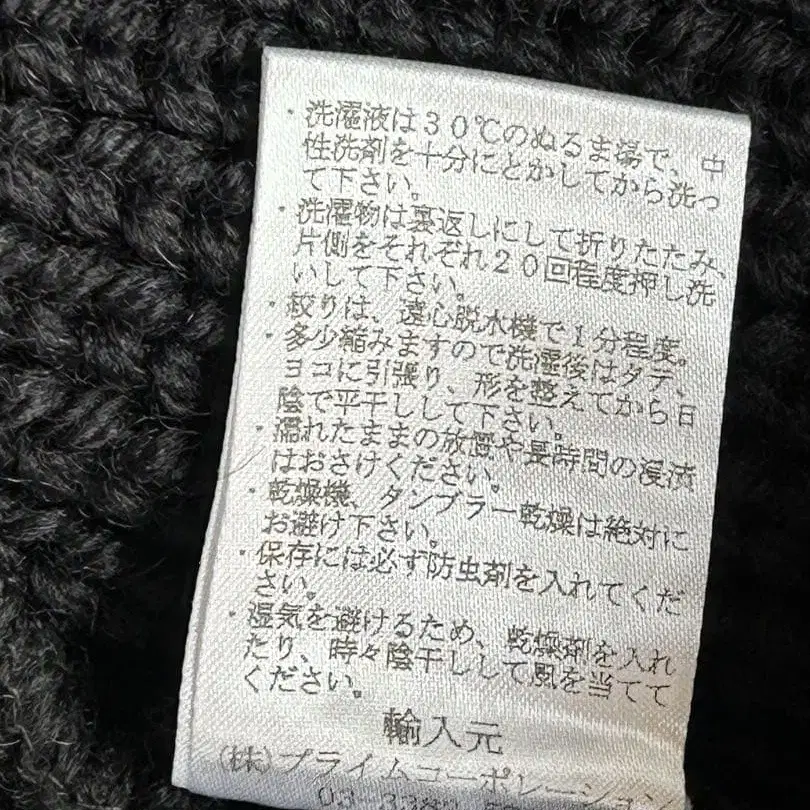 ・洗濯液は30℃のぬるま湯で、中
性洗剤を十分にとかしてから洗っ
て下さい。
・洗濯物は裏返しにして折りたたみ、
片側をそれぞれ20回程度押し洗
いして下さい。
・絞りは、遠心脱水機で1分程度。
・多少縮みますので洗濯後はタテ、
ヨコに引張り、形を整えてから日
陰で平干しして下さい。
・濡れたままの放置や長時間の浸漬
はおさけください。
・乾燥機、タンブラー乾燥は絶対に
お避け下さい。
・保存には必ず防虫剤を入れてくだ
さい。
・湿気を避けるため、乾燥剤を入れ
たり、時々陰干しして風を当てて
ください。
輸入元
(株)プライムコーポレーション